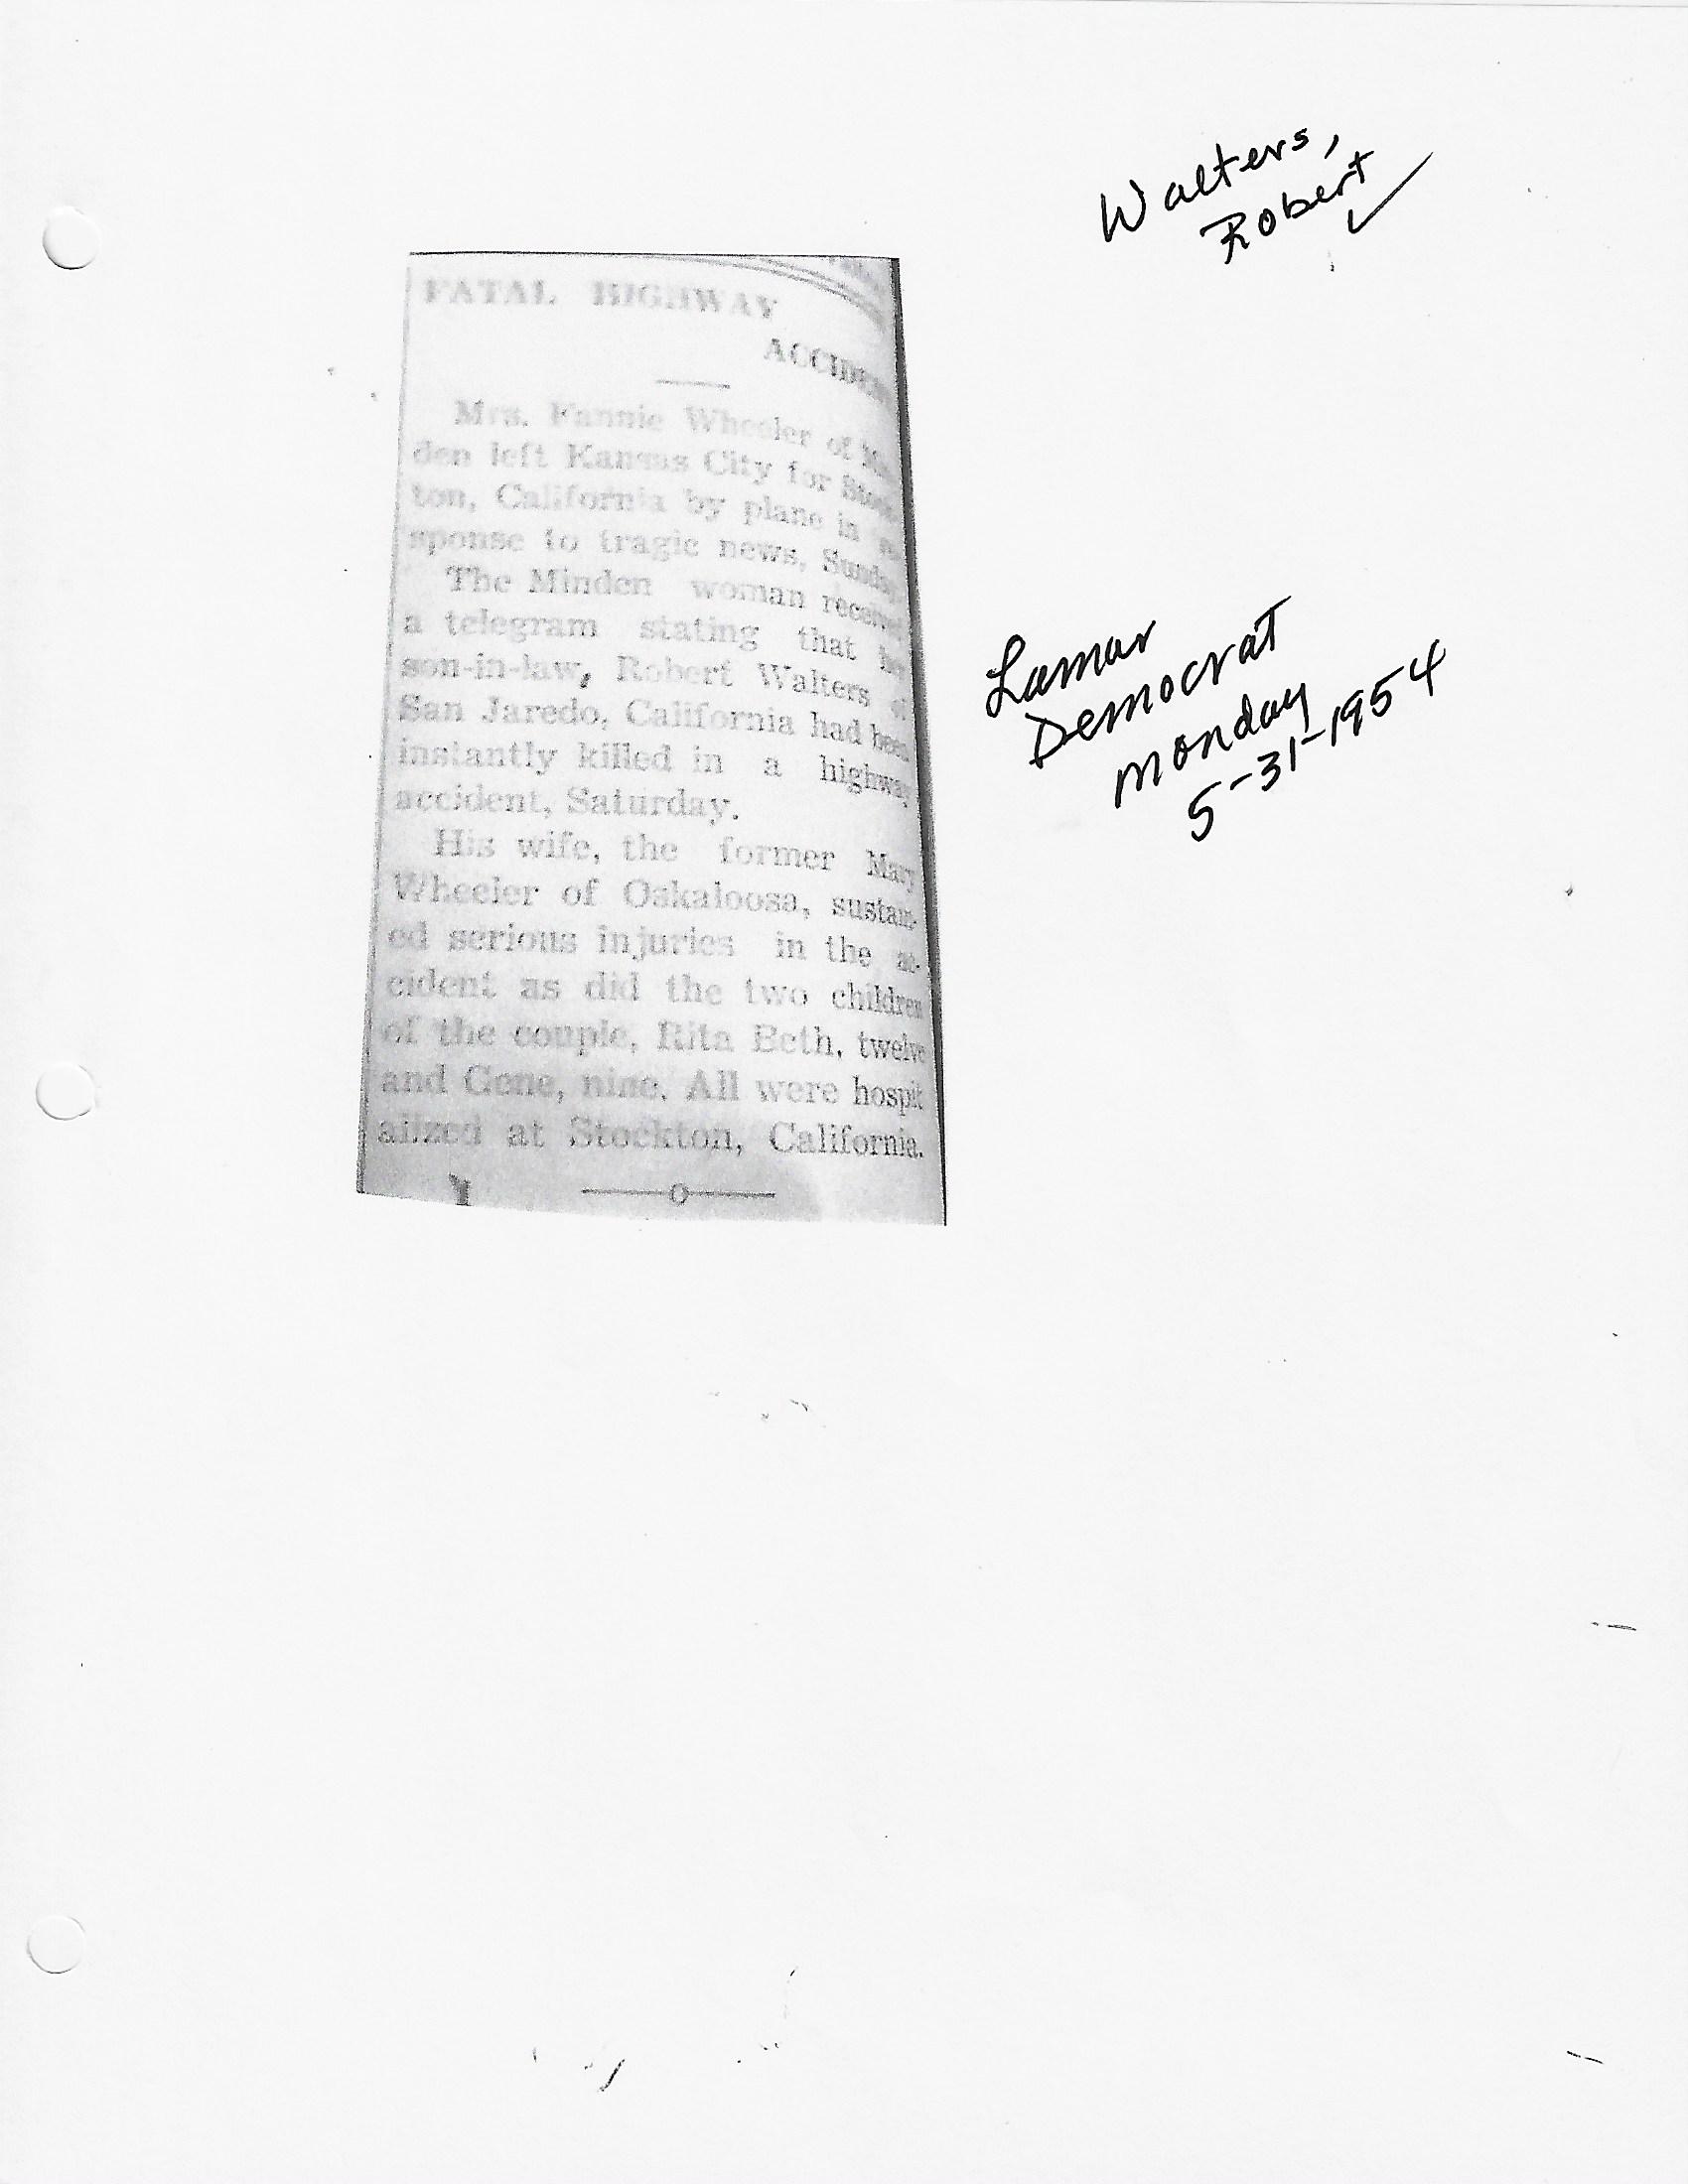 Walters,
Robert
FATAL HIGHWAY
ACCIDEN
Mrs. Fannie Wheeler of Min
den left Kansas City for Stock-
ton, California by plane in re
sponse to tragic news, Sunday.
The Minden woman received
a telegram stating that her
son-in-law, Robert Walters of
San Jaredo, California had been
instantly killed in a highway
accident, Saturday.
His wife, the former Mary
Wheeler of Oskaloosa, sustain-
ed serious injuries in the ac-
cident as did the two children
of the couple, Rita Beth, twelve
and Gene, nine. All were hospit
alized at Stockton, California.
Lamar
Democrat
Monday
5-31-1954